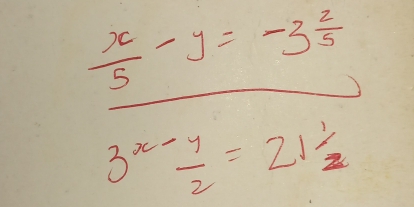 x/5 - y = -3 2/5
3x - y/2 = 21 1/2